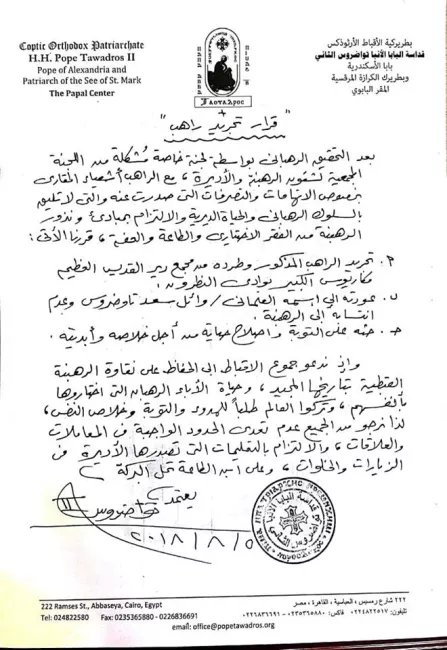 Coptic Orthodox Patriarchate
H.H. Pope Tawadros II
Pope of Alexandria and
Patriarch of the See of St. Mark
The Papal Center
بطريركية الأقباط الأرثوذكس
قداسة البابا الأنبا تواضروس الثاني
بابا الأسكندرية
وبطريرك الكرازة المرقسية
المقر البابوي
"قرار تجريد راهب"
بعد التحقيق الرهباني بواسطة لجنة خاصة مُشكلة من اللجنة
المجمعية لشئون الرهبنة والأديرة، مع الراهب أشعياء المقاري
بخصوص الاتهامات والتصرفات التي صدرت عنه والتي لا تليق
بالسلوك الرهباني والحياة الديرية والالتزام بمبادئ ونذور
الرهبنة من الفقر الاختياري والطاعة والعفة، قررنا الآتي:
تجريد الراهب المذكور وطرده من مجمع دير القديس العظيم
مكاريوس الكبير بوادي النطرون.
ب. عودته إلى اسمه العلماني / وائل سعد تاوضروس وعدم
انتسابه إلى الرهبنة.
ج. حثه على التوبة وإصلاح حياته من أجل خلاصه وأبديته.
وإذ ندعو جموع الأقباط إلى الحفاظ على نقاوة الرهبنة
القبطية بتاريخها المجيد، وحياة الآباء الرهبان التي اختاروها
بأنفسهم، وتركوا العالم طلباً للهدوء والتوبة وخلاص النفس،
لذا نرجو من الجميع عدم تعدى الحدود الواجبة في المعاملات
والعلاقات، والالتزام بالتعليمات التي تصدرها الأديرة في
الزيارات والخلوات، وعلى ابن الطاعة تحل البركة
يعتمد
تواضروس
٢٠١٨/٨/٥
قداسة البابا الأنبا
تواضروس الثاني
222 Ramses St., Abbaseya, Cairo, Egypt
Tel: 024822580 Fax: 0235365880 - 0226836691
٢٢٢ شارع رمسيس، العباسية، القاهرة، مصر
email: office@popetawadros.org